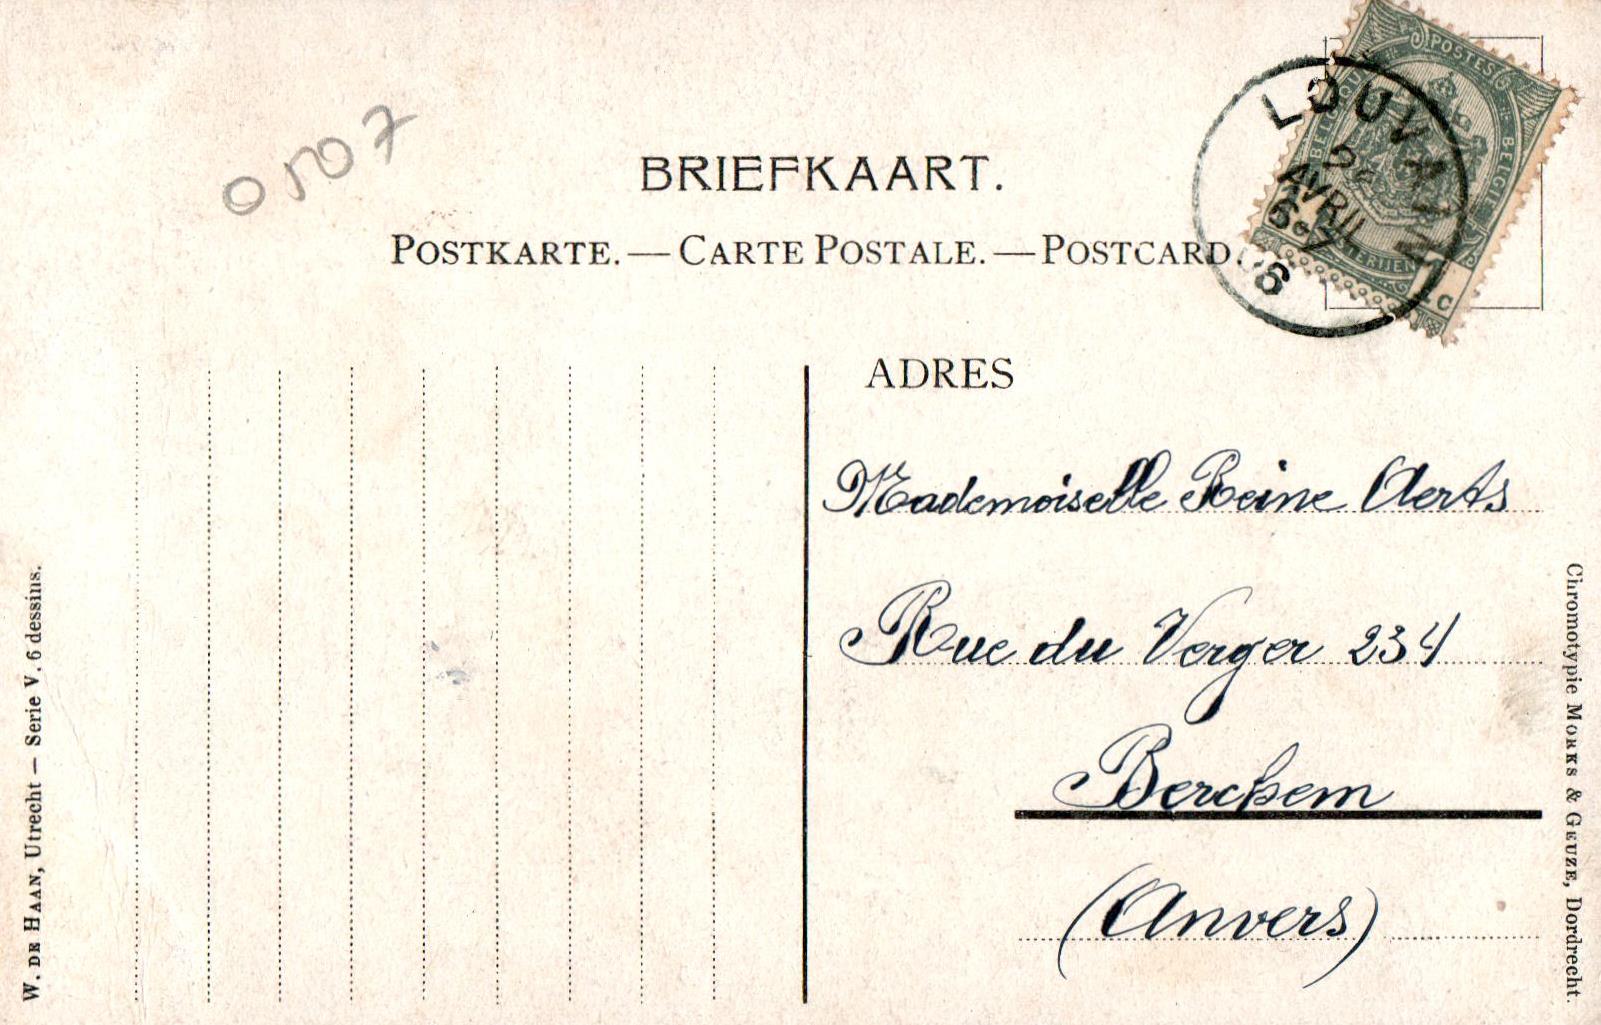 0507
BRIEFKAART.
POSTKARTE. — CARTE POSTALE. — POSTCARD.
POSTES
BELGIQUE BELGIË
LOUVAIN
AVRIL
ADRES
Mademoiselle Reine Aerts
Rue du Verger 234
Berchem
(Anvers)
W. DE HAAN, Utrecht — Serie V, 6 dessins.
Chromotypie MORKS & GEUZE, Dordrecht.